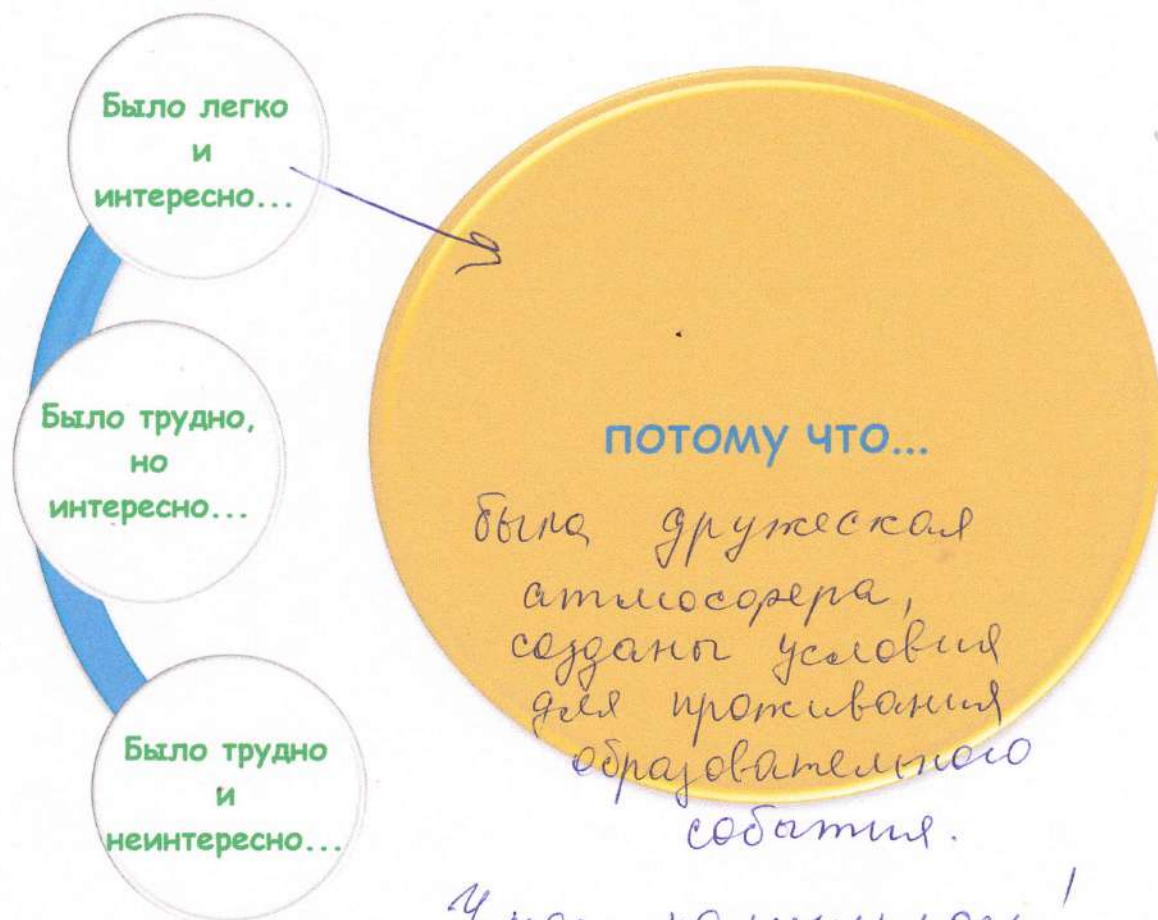 Было легко
и
интересно...
Было трудно,
но
интересно...
Было трудно
и
неинтересно...
потому что...
была дружеская
атмосфера,
созданы условия
для проживания
образовательного
события.